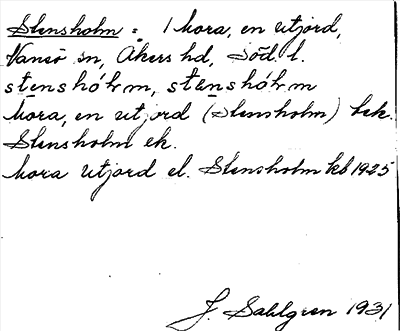 Stensholm = 1 Mora, en utjord,
Vansö sn, Åkers hd, Söd. l.
stènshólm, sténshólm
Mora, en utjord (Stensholm) bek.
Stensholm ek.
Mora Utjord el. Stensholm kb 1925
J. Sahlgren 1931